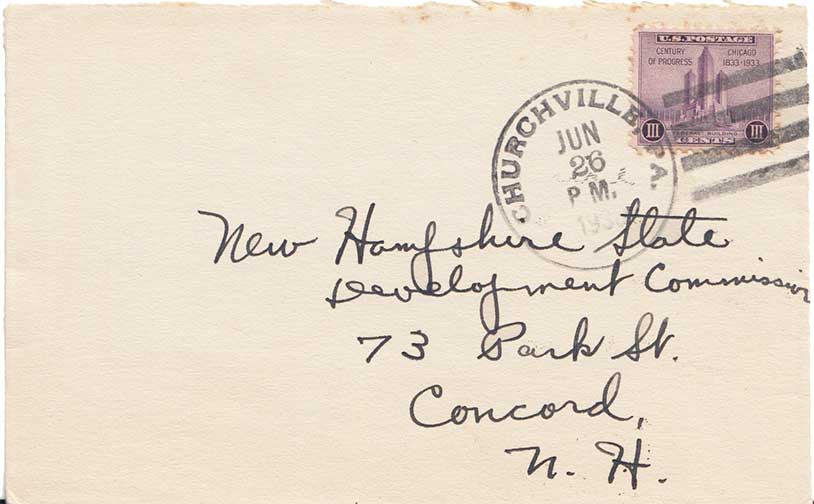 U.S. POSTAGE
CENTURY OF PROGRESS
CHICAGO 1833·1933
III
FEDERAL BUILDING
III
CENTS
CHURCHVILLE, PA.
JUN
26
P M.
New Hampshire State
Development Commission
73 Park St.
Concord,
N. H.